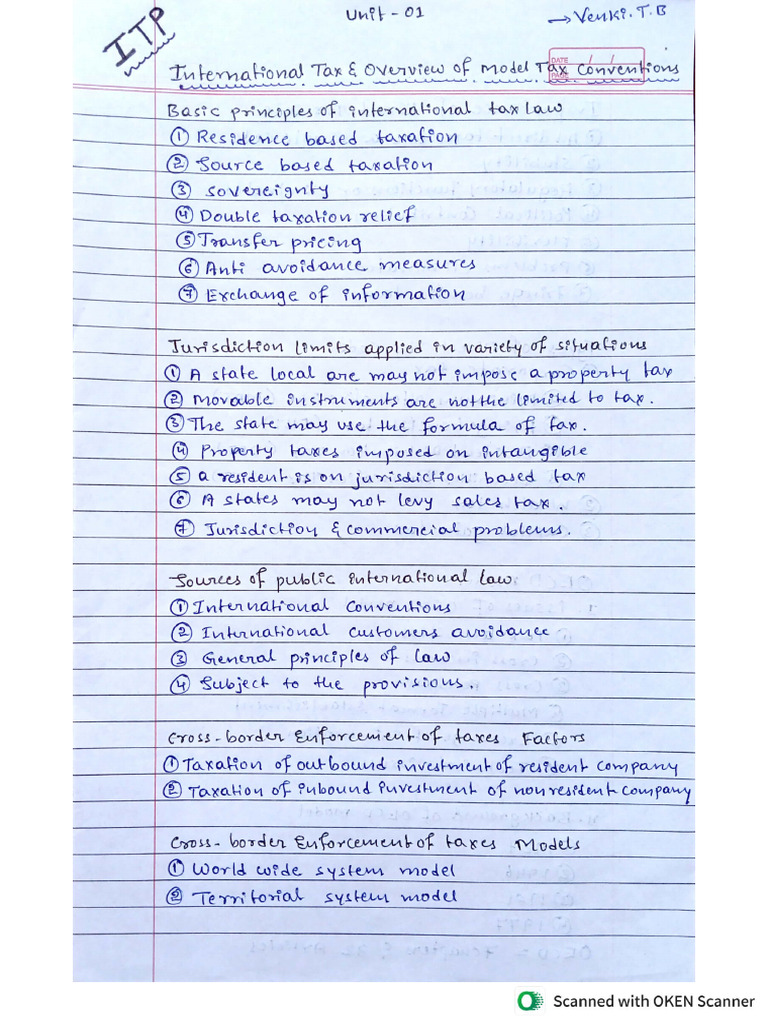 ITP
Unit - 01
→ Venki.T.B
DATE / /
PAGE
International Tax & Overview of Model Tax Conventions
Basic principles of international tax law
① Residence based taxation
② Source based taxation
③ Sovereignty
④ Double taxation relief
⑤ Transfer pricing
⑥ Anti avoidance measures
⑦ Exchange of information
Jurisdiction limits applied in variety of situations
① A state local are may not impose a property tax
② Movable instruments are not the limited to tax.
③ The state may use the formula of tax.
④ Property taxes imposed on intangible
⑤ a resident is on jurisdiction based tax
⑥ A states may not levy sales tax.
⑦ Jurisdiction & commercial problems.
Sources of public international law
① International conventions
② International customers avoidance
③ General principles of law
④ Subject to the provisions.
Cross-border Enforcement of taxes Factors
① Taxation of outbound investment of resident company
② Taxation of inbound investment of nonresident company
Cross-border Enforcement of taxes Models
① World wide system model
② Territorial system model
Scanned with OKEN Scanner